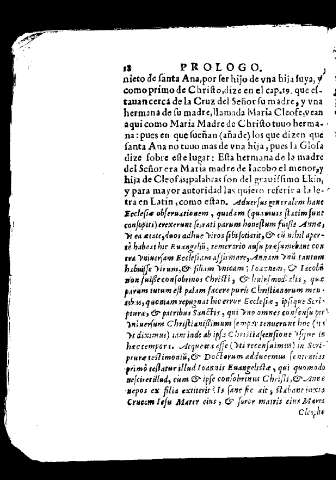 18 PROLOGO.
nieto de santa Ana, por ser hijo de vna hija suya, y
como primo de Christo, dize en el cap. 19. que es-
tauan cerca de la Cruz del Señor su madre, y vna
hermana de su madre, llamada Maria Cleofe, vean
aqui como Maria Madre de Christo tuuo herma-
na: pues en que sueñan (añade) los que dizen que
santa Ana no tuuo mas de vna hija, pues la Glosa
dize sobre este lugar: Esta hermana de la madre
del Señor era Maria madre de Iacobo el menor, y
hija de Cleofas palabras son del grauissimo
y para mayor autoridad las quiero referir a la le-
tra en Latin, como estan. Aduersus generalem hanc
Ecclesiæ obseruationem, quidam (quamuis statim sunt
consopiti) erexerunt se, rati parum honestum fuisse Annæ,
vt ea ætate, duos adhuc viros sibi sociaret, & cũ nihil aper-
tè habeat hoc Euangeliũ, temerario ausu præsumerunt con-
tra vniuersam Ecclesiam assumere, Annam vnũ tantum
habuisse virum, & filiam vnicam: Ioannem, & Iacobũ
non fuisse consobrinos Christi, & huiusmodi alia, quæ
parum tutum est palam facere puris Christianorum men-
tibus, quoniam repugnat hoc error Ecclesiæ, ipsique Scri-
pturæ, & patribus Sanctis, qui vno omnes consensu per
vniuersum Christianissimum semper tenuerunt hoc (vt
vt diximus) iam inde ab ipso Christi ascensione vsque in
hæc tempora. Atque ex asse (vt recensuimus) in Scri-
pturæ testimoniũ, & Doctorum adducemus sententias
primò restat illud Ioannis Euangelistæ, qui quomodo
nesciret illud, cum & ipse consobrinus Christi, & Annæ
nepos ex filia extiterit? Is sanè sic ait, stabant iuxta
Crucem Iesu Mater eius, & soror matris eius Maria
Cleophe